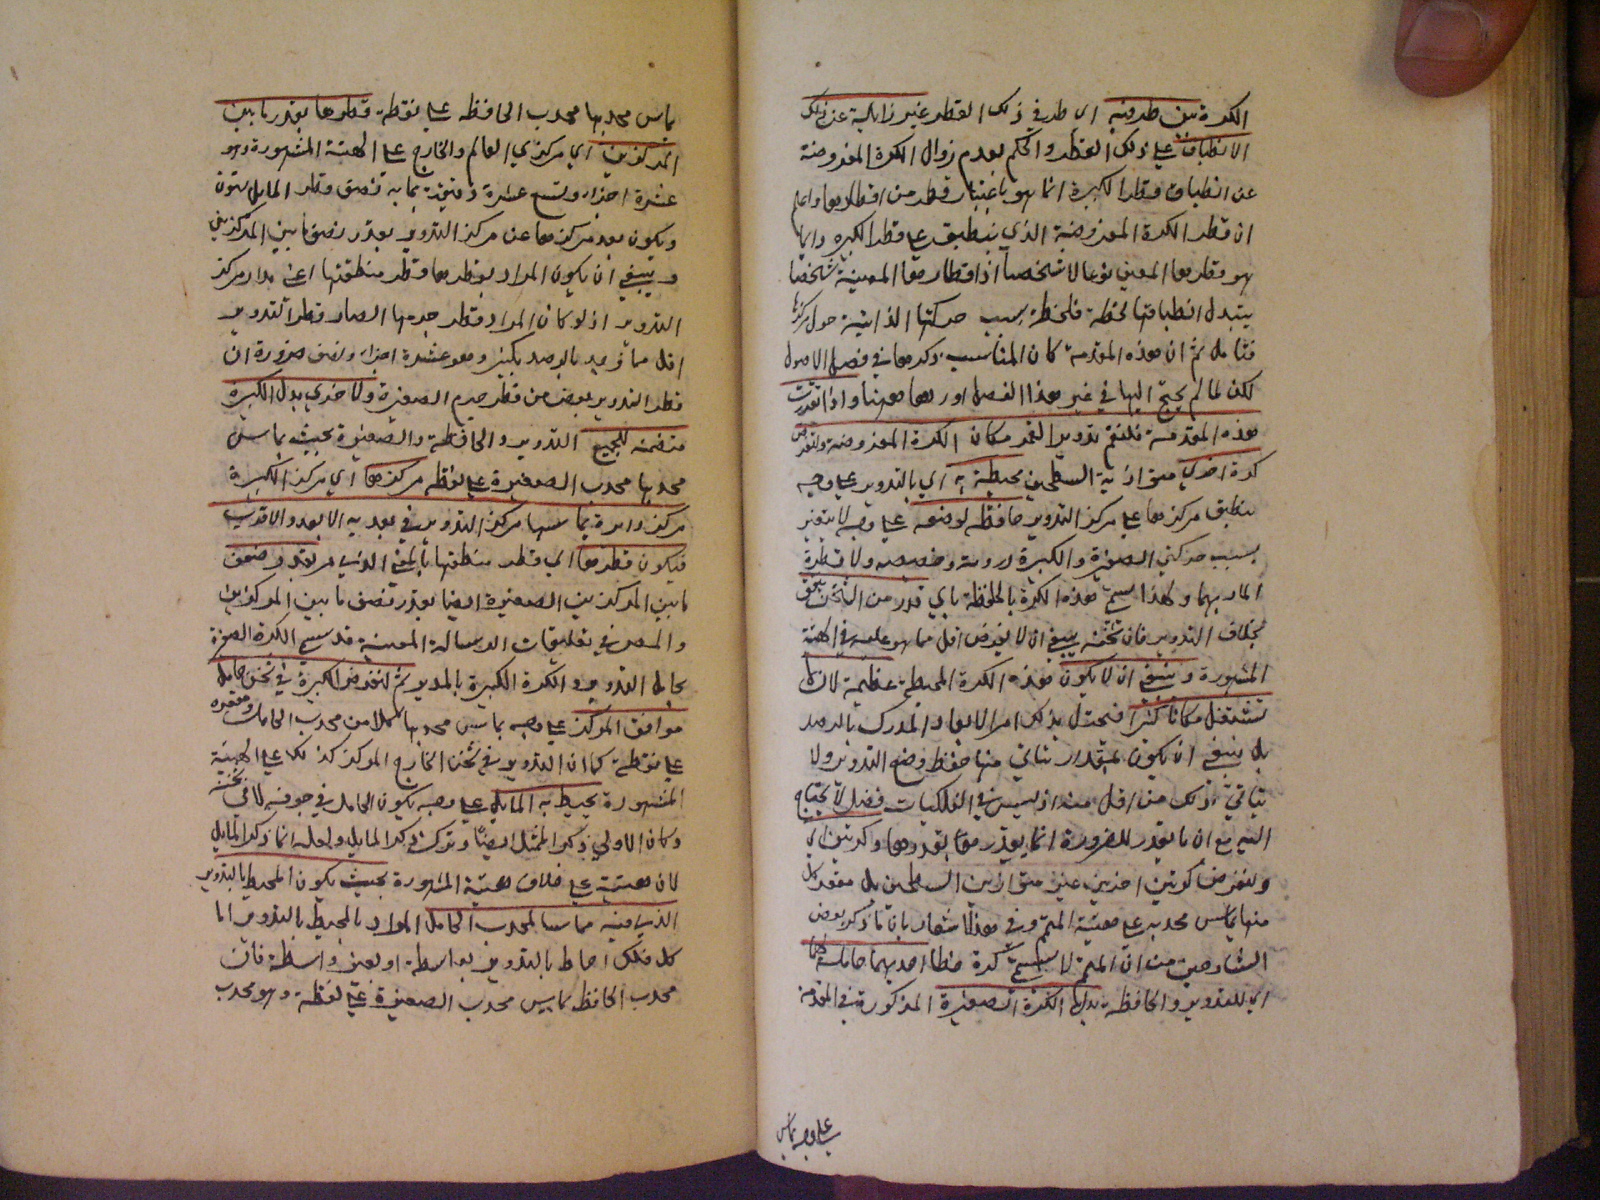 الكرة بين طرفيه اى طرفي ذلك القطر غير زايلة عن ذلك
الانطباق على ذلك القطر والحكم بعدم زوال الكرة المفروضة
عن انطباق وقطر الكبيرة انما هو باعتبار قطر من اقطارها واعلم
ان قطر الكرة المفروضة الذي ينطبق على قطر الكبيرة دايما
هو قطرها المعين نوعا لا شخصا اذ اقطارها المعينة شخصا
يتبدل انطباقها لحظة فلحظة بسبب حركتها الذاتية حول مركزها
فتامل ثم ان هذه المقدمة كان المناسب ذكرها في فصل الاصول
لكن لما لم يحتج اليها في غير هذا الفصل اوردها ههنا واذا تقررت
هذه المقدمة فلنقم تدوير القمر مكان الكرة المفروضة ولنفرض
كرة اخرى متوازية السطحين محيطة به اي بالتدوير على وجه
ينطبق مركزها على مركز التدوير حافظة لوضعه على وجه لا يتغير
بسبب حركتي الصغيرة والكبيرة ذروته وحضيضه ولا قطره
المار بهما ولهذا سميت هذه الكرة بالحافظة باي قدر من الثخن يتفق
بخلاف التدوير فان ثخنه ينبغي ان لا يفرض اقل مما هو عليه في الهيئة
المشهورة وينبغي ان لا يكون هذه الكرة المحيطة عظيمة لئلا
تشتغل مكانا كثيرا فيختل بذلك امر الابعاد المدرك بالرصد
بل ينبغي ان يكون بمقدار يتاتي منها حفظ وضع التدوير ولا
يتاتى ذلك من اقل منه اذ ليس في الفلكيات فضل لا يحتاج
اليه مع ان ما يقدر للضرورة انما يقدر بقدرها وكرتين اي
ولنفرض كرتين اخريين غير متوازيتين السطحين بل مقعر كل
منها يماس محدبه على هيئة المتمم وفي هذا اشعار بان ما ذكر بعض
الشارحين من ان المتمم لا يسمى كرة خطأ احديهما حاملة لهما
اي للتدوير والحافظة بدل الكرة الصغيرة المذكورة في المقدمة
على وجه يماس
يماس محدبها محدب الحافظة على نقطة قطرها بقدر ما بين
المركزين اي مركزي العالم والخارج على الهيئة المشهورة وهو
عشرة اجزاء وتسع عشرة دقيقة بما به نصف قطر المايل ستون
ويكون بعد مركزها عن مركز التدوير بقدر نصف ما بين المركزين
وينبغي ان يكون المراد بقطرها قطر منطقتها اعنى مدار مركز
التدوير اذ لو كان المراد قطر جرمها لصار قطر التدوير
اقل مما وجد بالرصد بكثير وهو عشرة اجزاء ونصف ضرورة ان
قطر التدوير بعض من قطر جرم الصغيرة ولا اخرى بدل الكبيرة
متضمنة للجميع التدوير والحافظة والصغيرة بحيث يماس
محدبها محدب الصغيرة على نقطة مركزها اي مركز الكبيرة
مركز دايرة يماسها مركز التدوير في بعديه الابعد والاقرب
فيكون قطرها اي قطر منطقتها بالمعنى الذي مر بقدر ضعف
ما بين المركزين الصغيرة ايضا بقدر نصف ما بين المركزين
والمص في تعليقات الرسالة المعينية قد سمى الكرة الصغيرة
بحامل التدوير والكرة الكبيرة بالمدير ثم لنفرض الكبيرة في ثخن حامل
موافق المركز على وجه يماس محدبها كلا من محدب الحامل ومقعره
على نقطة كما ان التدوير في ثخن الخارج المركز كذلك على الهيئة
المشهورة يحيط به المايل على وجه يكون الحامل في جوفه لا في ثخنه
وكان الاولى ذكر الممثل ايضا وترك ذكر المايل ولعله انما ذكر المايل
لان هيئته على خلاف هيئة المشهورة بحيث يكون المحيط بالتدوير
الذي فيه مماسا لمحدب الحامل المراد بالمحيط بالتدوير اما
كل فلك احاط بالتدوير بواسطة او بغير واسطة فان
محدب الحافظ يماس محدب الصغيرة على نقطة وهو محدب